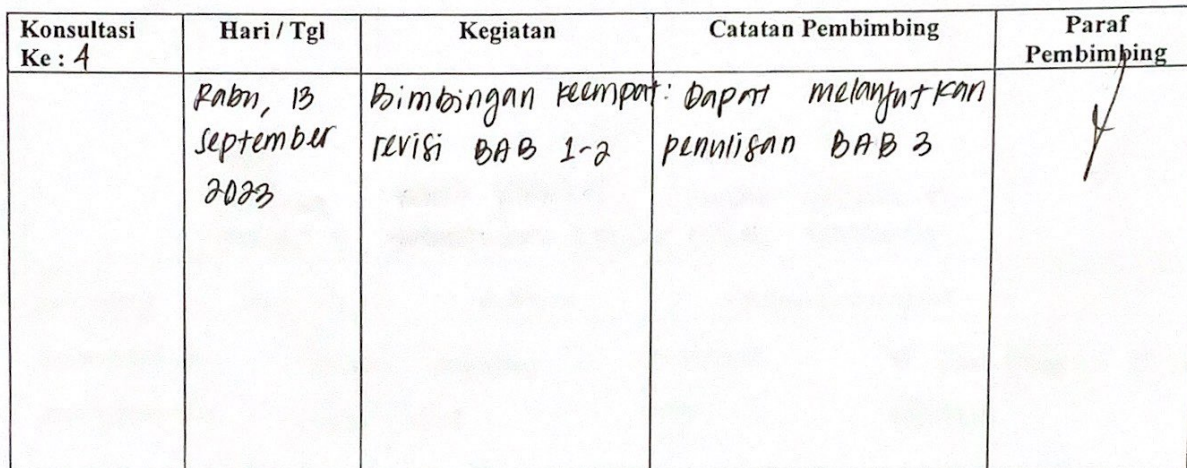 Konsultasi Ke : 4
Hari / Tgl
Kegiatan
Catatan Pembimbing
Paraf Pembimbing
Rabu, 13
September
2023
Bimbingan keempat:
revisi BAB 1-2
Dapat melanjutkan
penulisan BAB 3